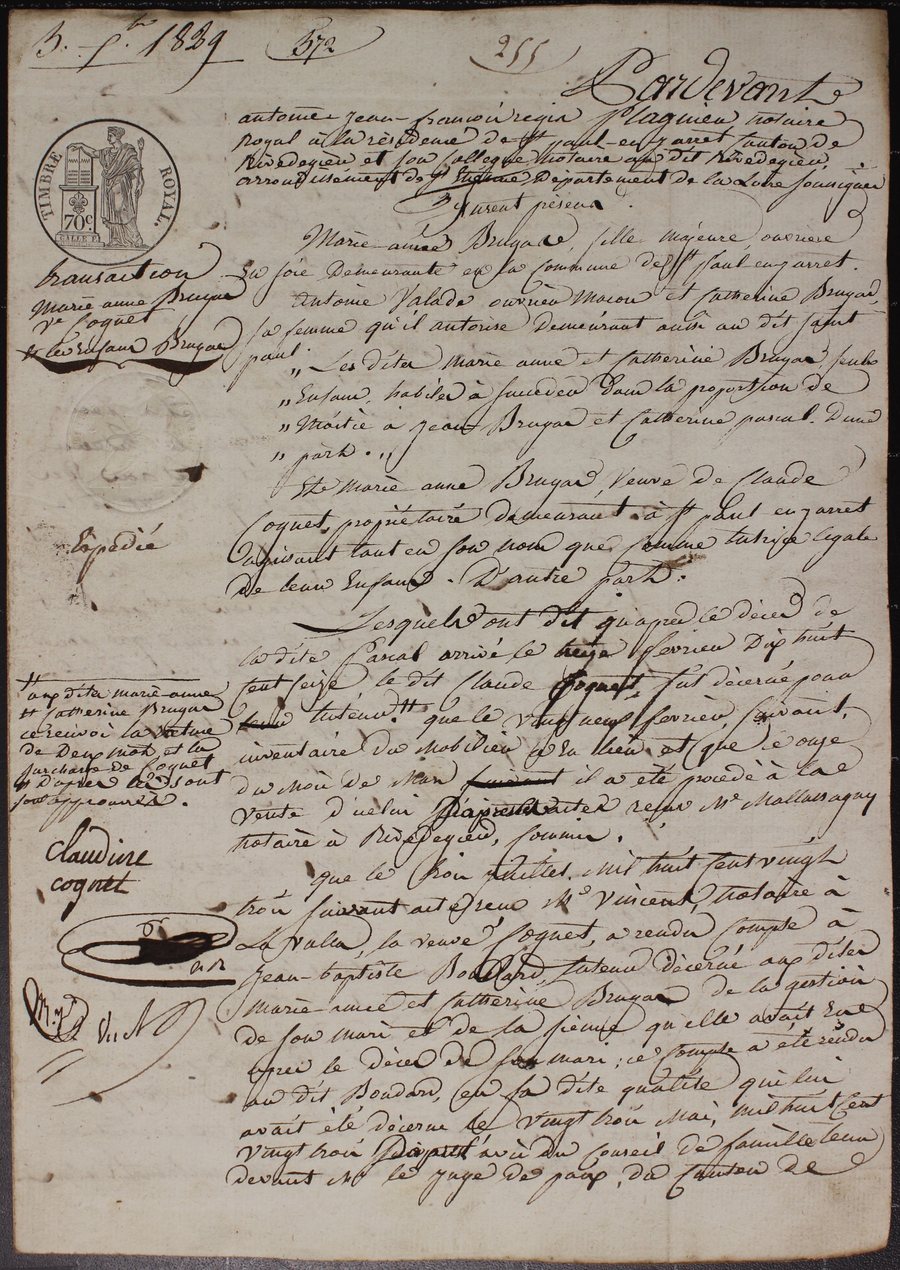 3. 7bre 1829
372
255
Pardevant
antoine jean-francois regis plagnieu notaire
Royal à la résidence de st paul-en-jarret canton de
Rivedegier et son collegue notaire au dit Rivedegier
arrondissement de st Etienne Département de la Loire soussignés
Furent présens
TIMBRE ROYAL.
70c
Marie anne Bruyas, fille majeure, ouvriere
en soie demeurante en la commune de st paul en jarret.
antoine Valade ouvrier macon et catherine Bruyas,
sa femme qu'il autorise demeurant aussi au dit saint
paul.
" Les dites marie anne et catherine Bruyas, seuls
" Enfans, habiles à succeder dans la proportion de
" Moitié à jean Bruyas et catherine pascal. D'une
" part. "
Et marie anne Bruyas veuve de claude
Coquet, propriétaire demeurant à st paul en jarret
agissant tant en son nom que comme tutrice legale
de leurs Enfans. D'autre part.
Lesquels ont dit qu'apres le décès de
la dite Pascal arrivé le fevrier Dix huit
cent seize le dit Claude Coquet, fut décerné pour
leur tuteur # que le vingt neuf fevrier, suivant,
inventaire du mobilier a eu lieu et que le onze
du mois de Mars il a été procédé à la
vente d'icelui D'apres actes reçus Me Mallassagny
notaire à Rivedegier, commis.
que le trois juillet, mil huit cent vingt
trois suivant acte reçu Me Vincent, notaire à
La valla, la veuve Coquet, a rendu compte à
jean-baptiste Boudard tuteur décerné aux dites
Marie-anne et catherine Bruyas de la gestion
de son mari et de la sienne qu'elle avait Eue
apres le décès de son mari; ce compte a été rendu
au dit Boudard, en sa dite qualité qui lui
avait été décerné le vingt trois mai, mil huit cent
vingt trois D'apres l'avis du conseil de famille tenu
devant Mr le juge de paix, du canton de
transaction
Marie anne Bruyas
Ve Coquet
et les Enfans Bruyas
Expedié
# aux dites marie anne
et catherine Bruyas
ce renvoi la rature
de Deux mots et la
surcharge de Coquet
et D'apres sont
approuvés.
claudine
coqnet